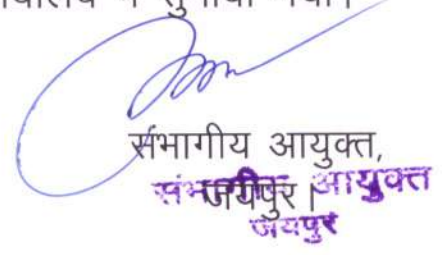 में सुनाया गया।
संभागीय आयुक्त,
जयपुर।
संभागीय आयुक्त
जयपुर